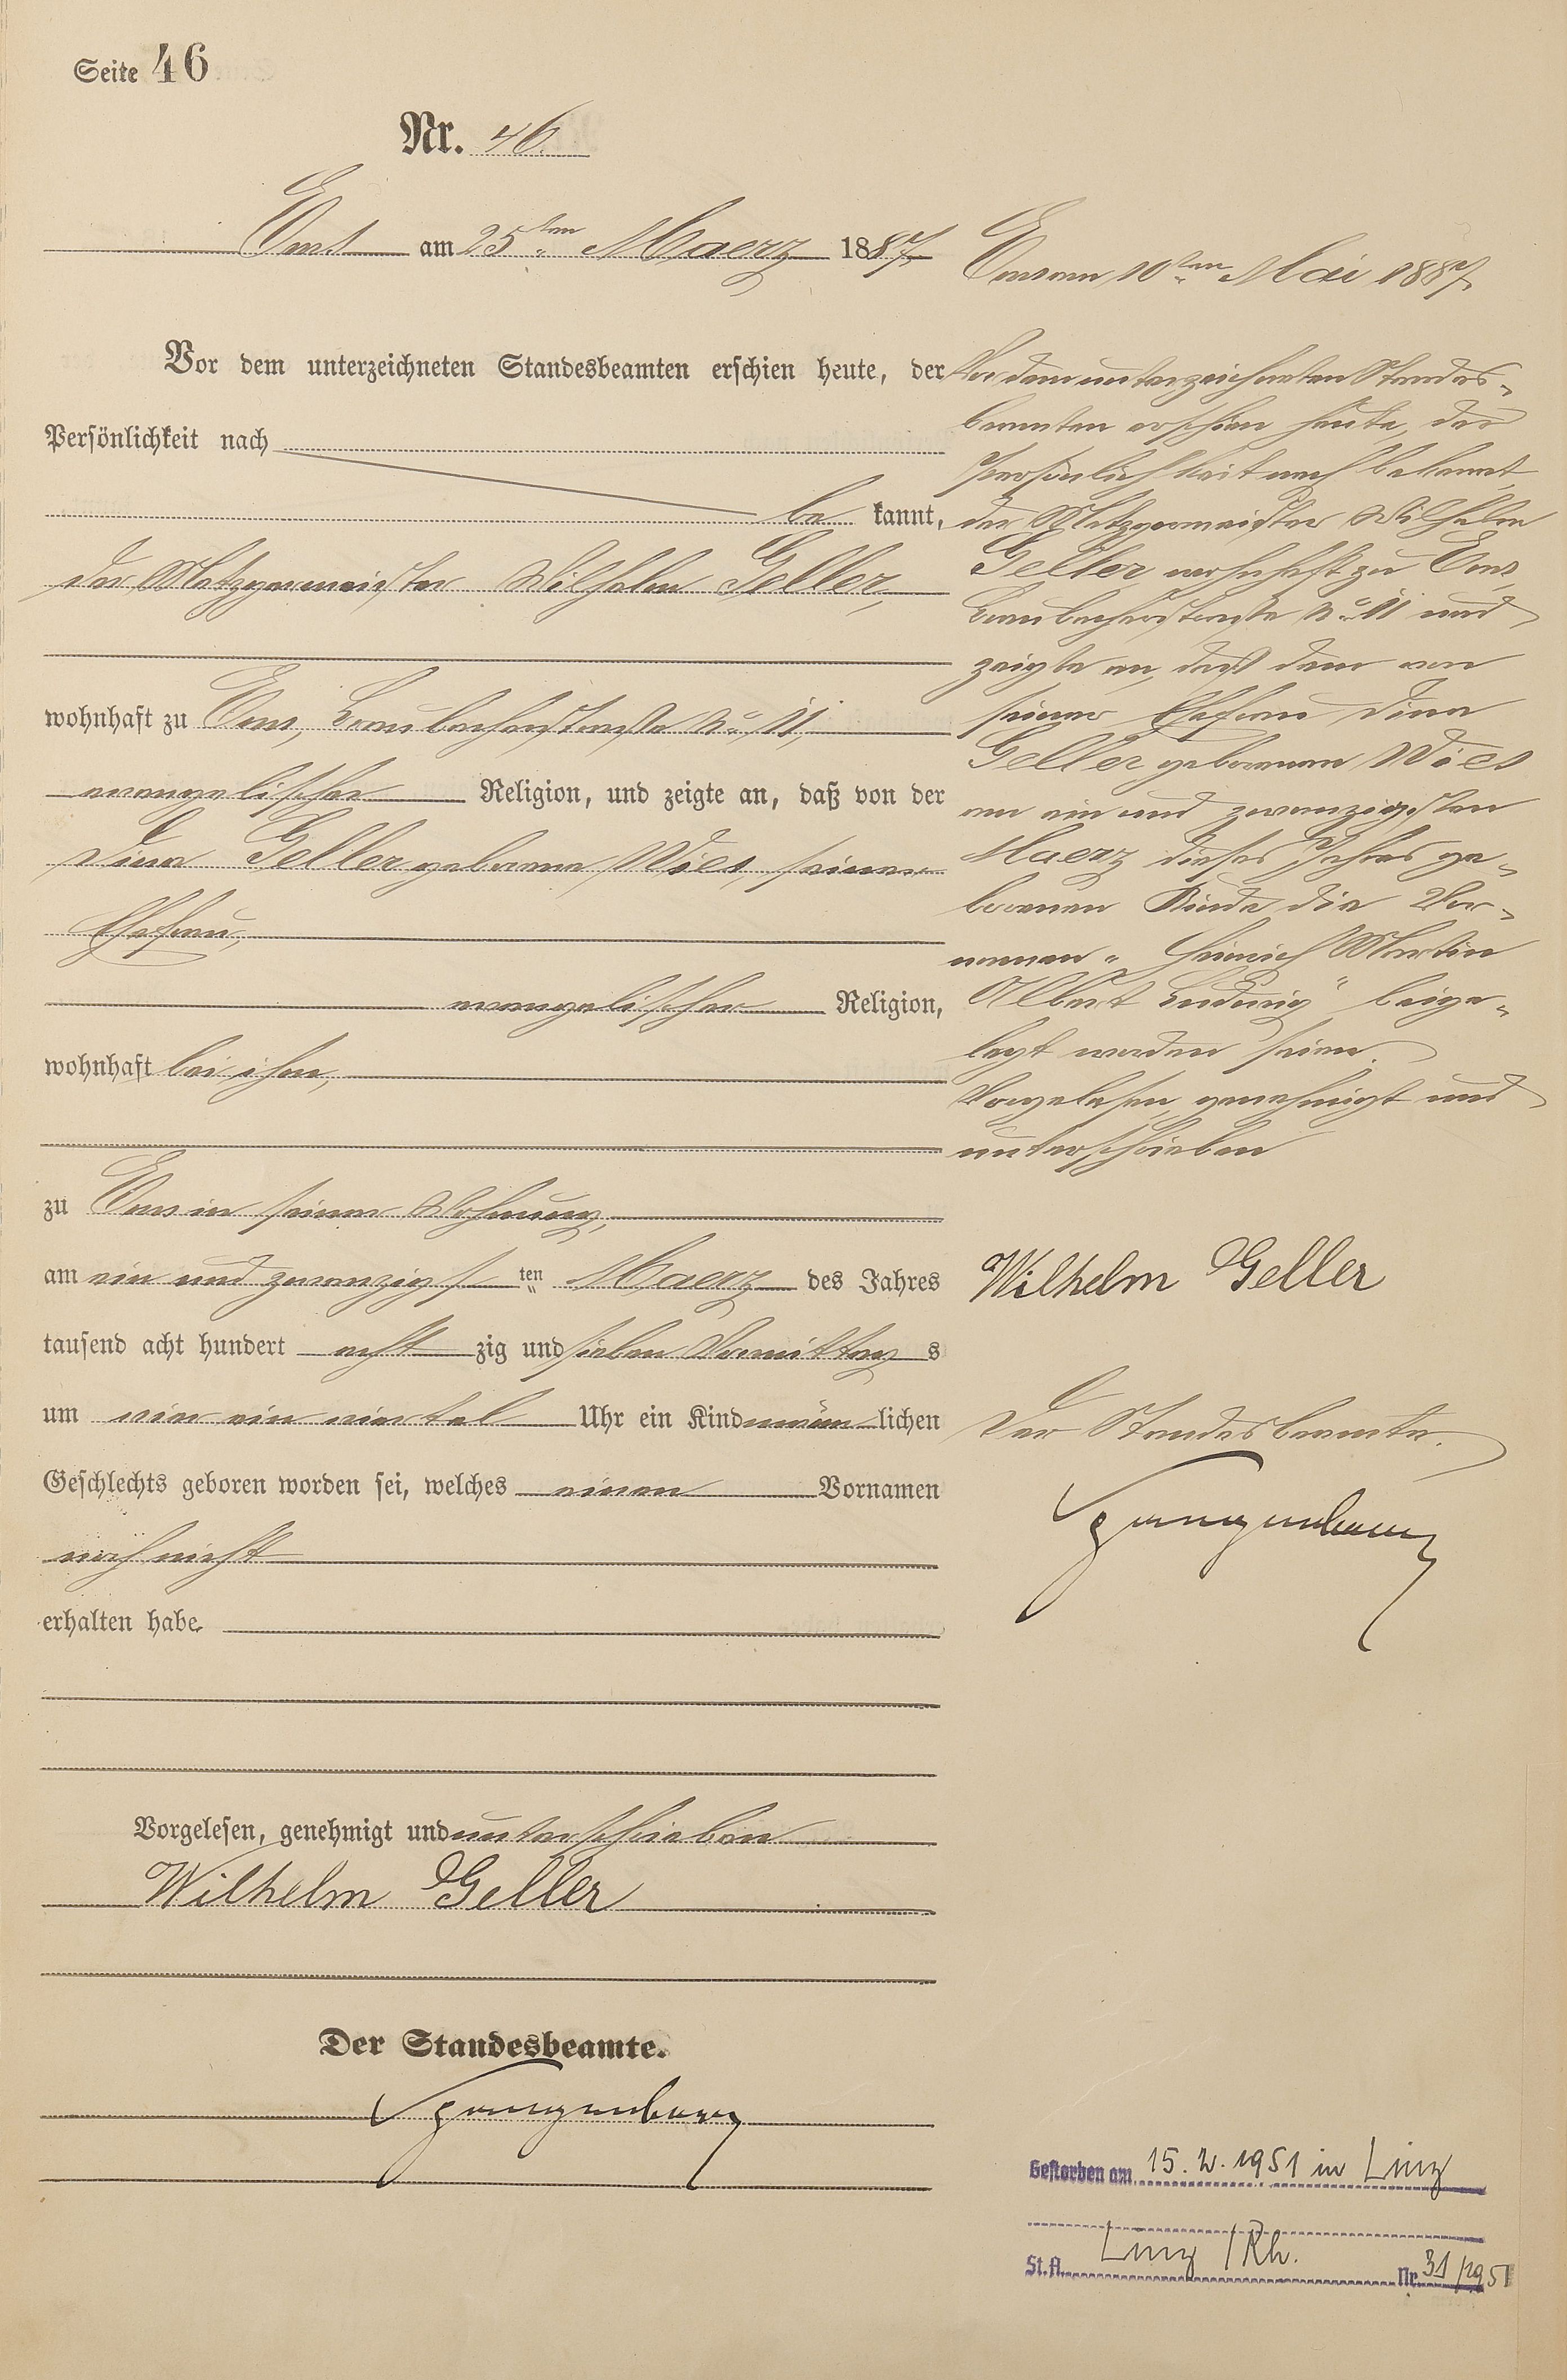 Seite 46
Nr. 46.
Ems am 25ten Maerz 1887.
Vor dem unterzeichneten Standesbeamten erschien heute, der
Persönlichkeit nach
be kannt,
der Metzgermeister Wilhelm Geller,
wohnhaft zu Ems, Braubacherstraße No 11,
evangelischer Religion, und zeigte an, daß von der
Dina Geller geborene Wies, seiner
Ehefrau,
evangelischer Religion,
wohnhaft bei ihm,
zu Ems in seiner Wohnung,
am ein und zwanzigsten Maerz des Jahres
tausend acht hundert acht zig und sieben Vormittags
um vier ein viertel Uhr ein Kind männlichen
Geschlechts geboren worden sei, welches einen Vornamen
noch nicht
erhalten habe.
Vorgelesen, genehmigt und unterschrieben
Wilhelm Geller
Der Standesbeamte.
Ems am 10ten Mai 1887.
Vor dem unterzeichneten Standes-
beamten erschien heute, der
Persönlichkeit nach bekannt,
der Metzgermeister Wilhelm
Geller, wohnhaft zu Ems,
Braubacherstraße No 11 und
zeigte an, daß dem von
seiner Ehefrau Dina
Geller geborenen Wies
am ein und zwanzigsten
Maerz dieses Jahres ge-
borenen Kinde die Vor-
namen „Heinrich Martin
Albert Ludwig“ beige-
legt worden seien.
Vorgelesen, genehmigt und
unterschrieben
Wilhelm Geller
Der Standesbeamte.
Gestorben am 15.2.1951 in Linz
St.A. Linz/Rh. Nr. 31/1951